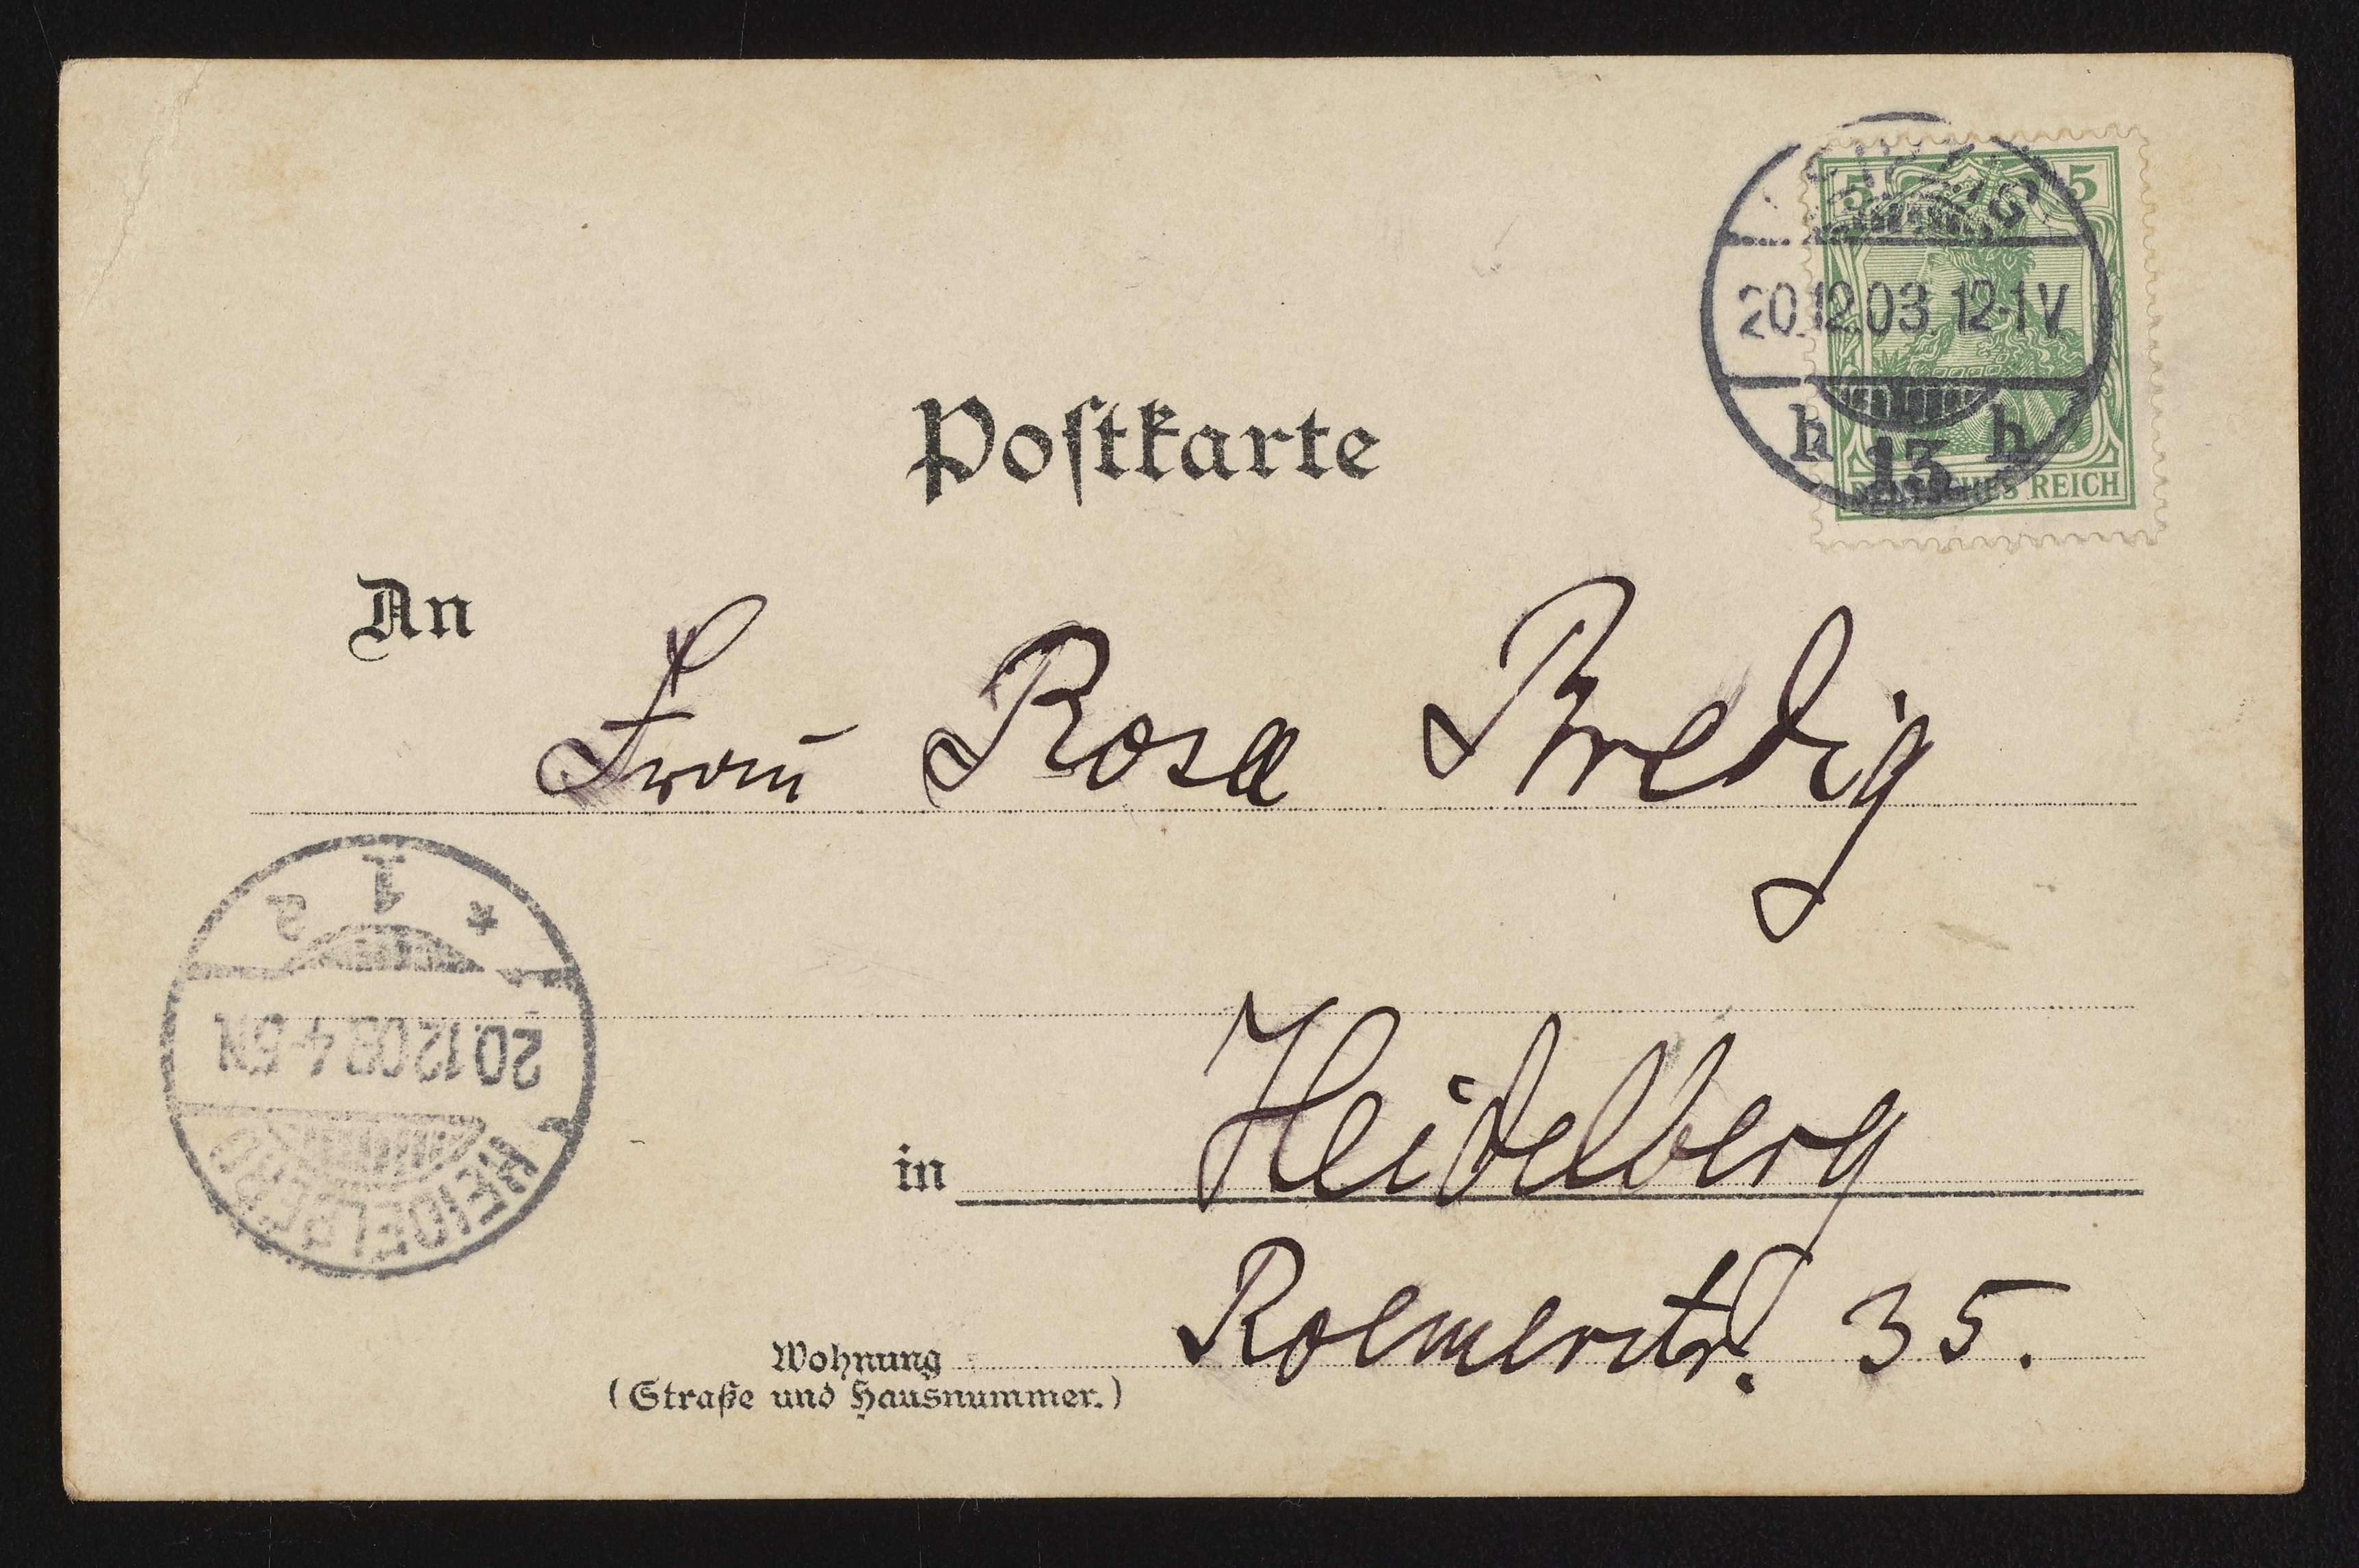 5 5
LEIPZIG
20.12.03. 12-1V
h 13 h
DEUTSCHES REICH
Postkarte
An Frau Rosa Bredig
HEIDELBERG
20.12.03. 4-5N
* 1 a
in Heidelberg
Wohnung Roemerstr. 35.
(Straße und Hausnummer.)